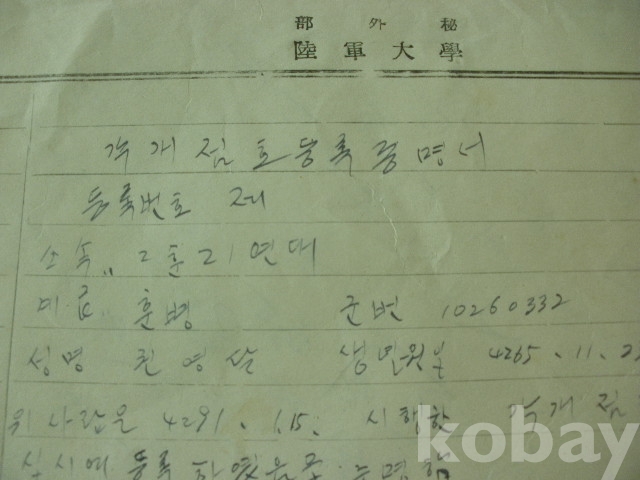 部外秘
陸軍大學
각개점호등록증명서
등록번호 제
소속,, 2훈21연대
훈병 군번 10260332
성명 권영달 생년월일 4265.11.2
위 사람은 4291.1.15. 시행한 각개점
실시에 등록하였음을 증명함
kobay